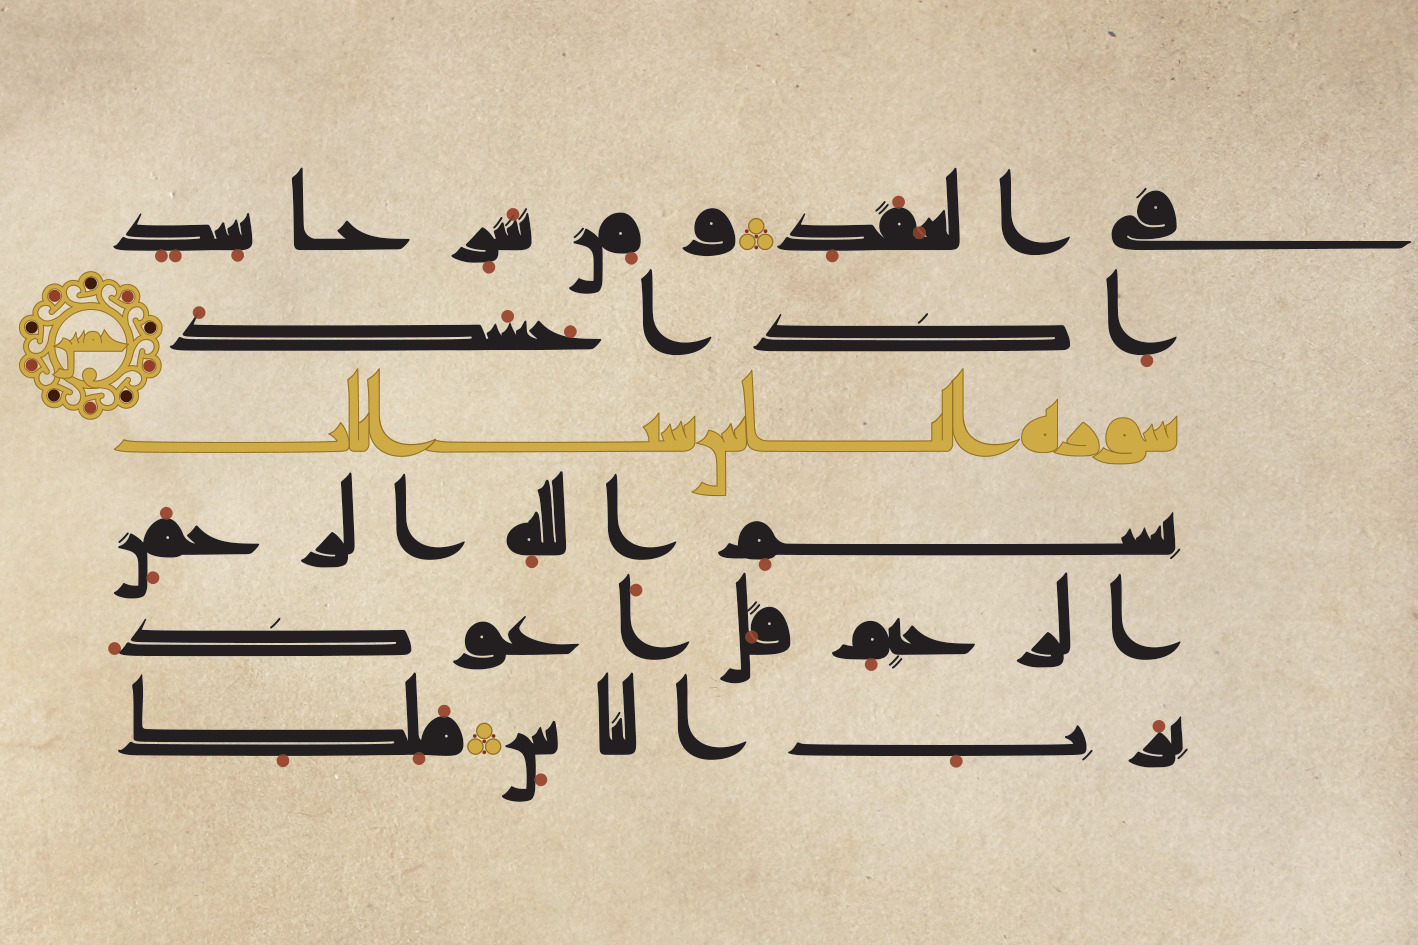 في العقد ومن شر حاسد
اذا حسد
سورة الناس ست ايات
بسم الله الرحمن
الرحيم قل اعوذ
برب الناس ملك